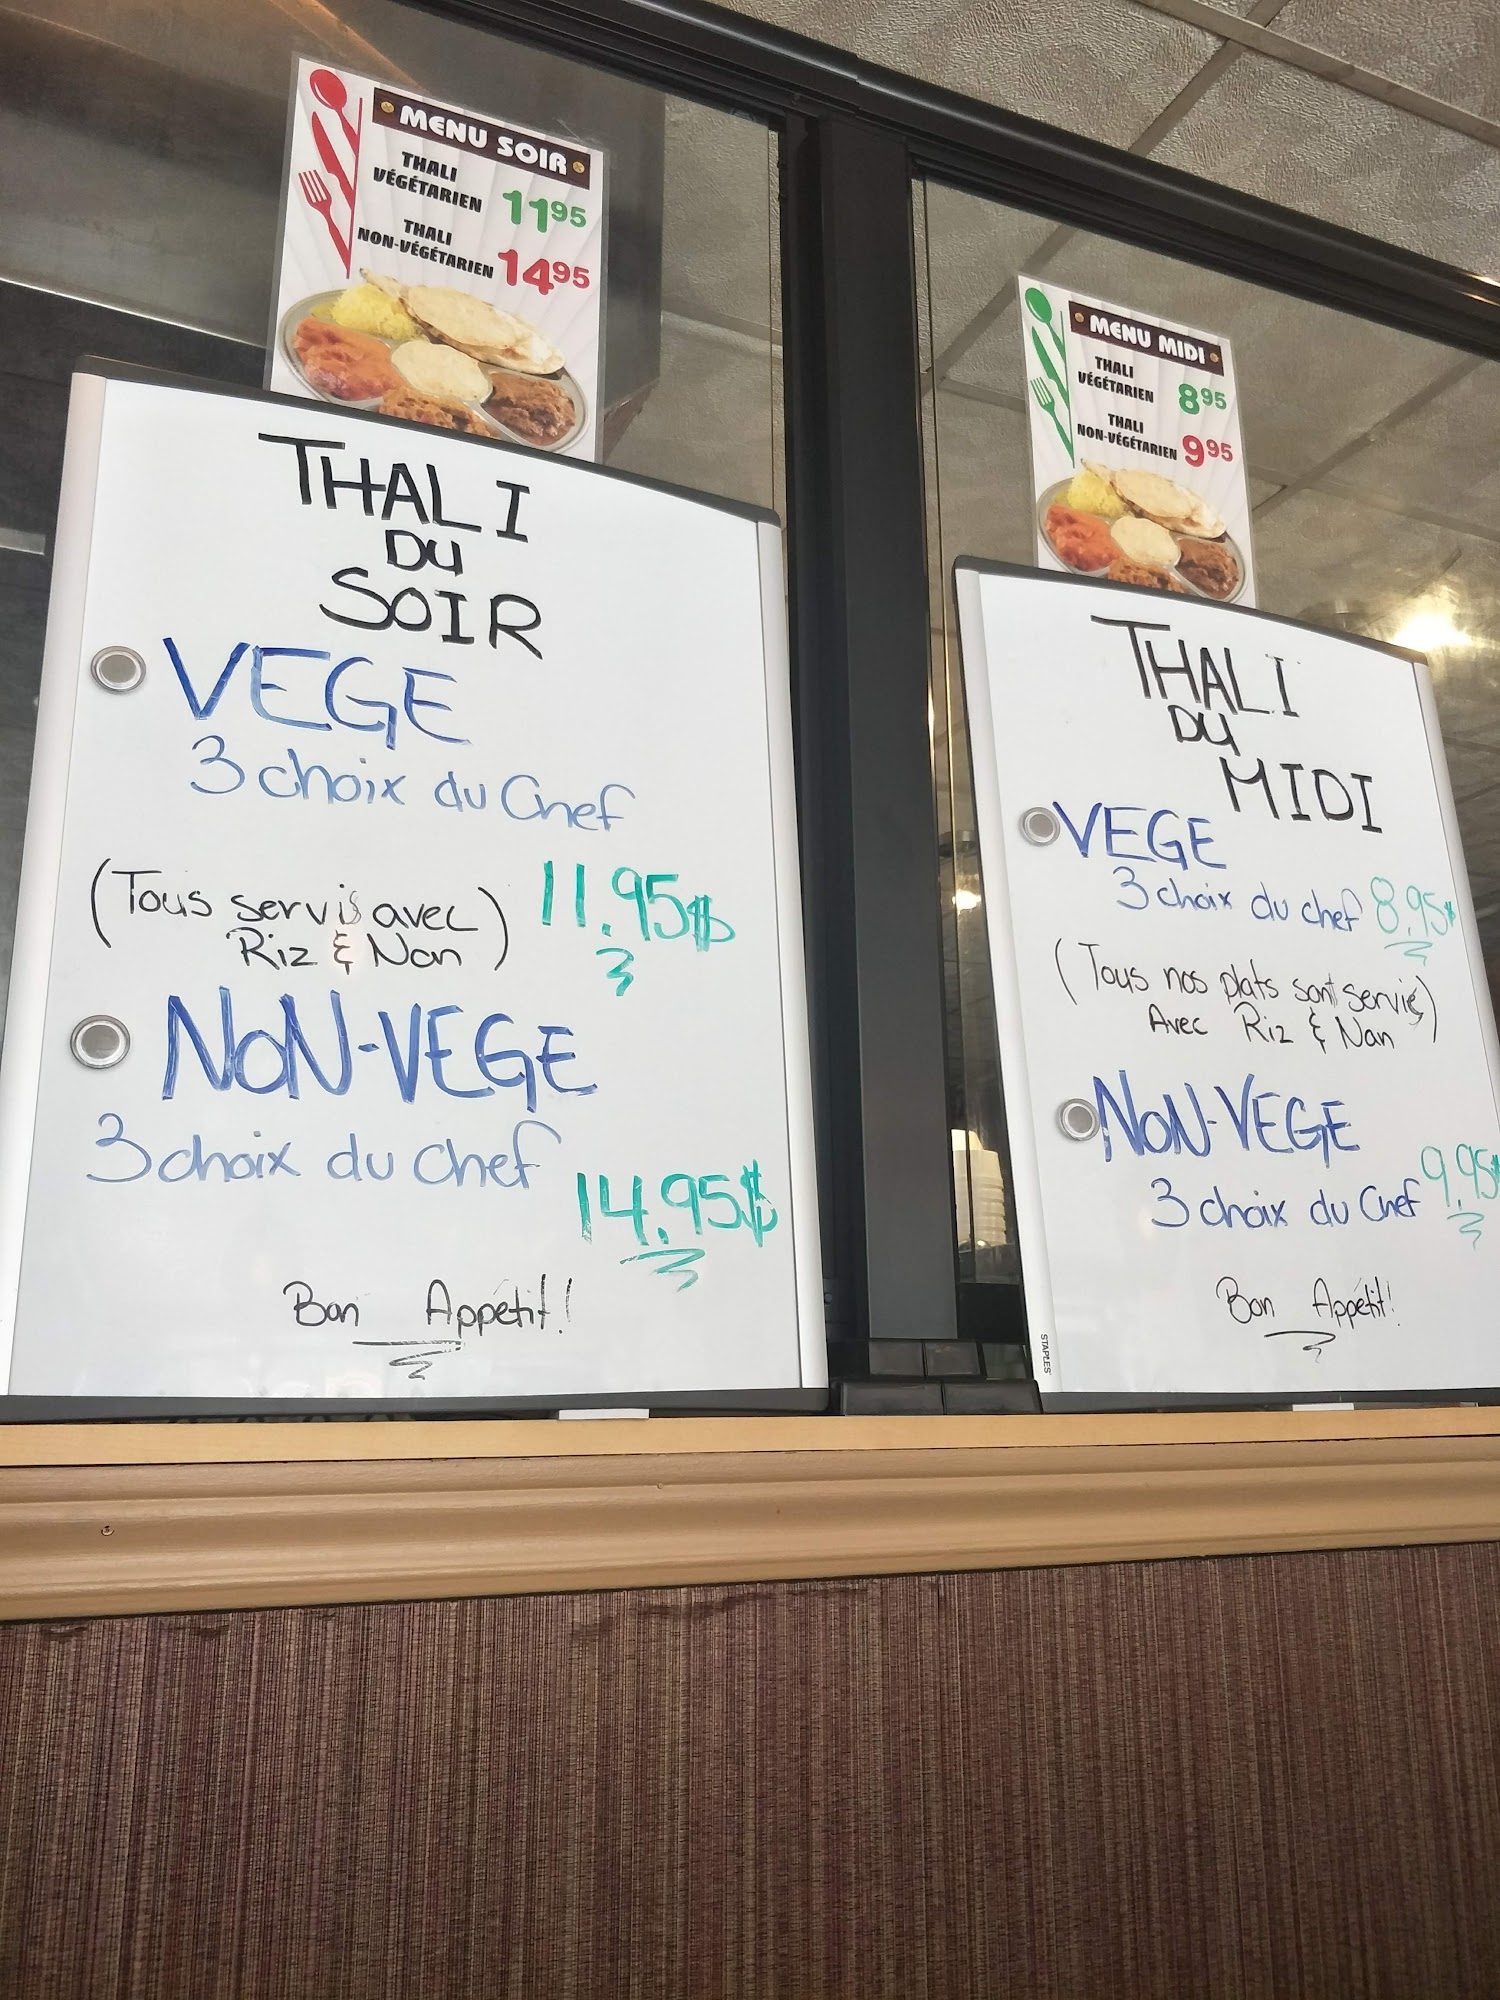 MENU SOIR
THALI
VÉGÉTARIEN 1195
THALI
NON-VÉGÉTARIEN 1495
THALI
DU
SOIR
VEGE
3 choix du Chef
(Tous servis avec
Riz & Nan) 11.95$
NON-VEGE
3 choix du Chef
14.95$
Bon Appétit!
MENU MIDI
THALI
VÉGÉTARIEN 895
THALI
NON-VÉGÉTARIEN 995
THALI
DU
MIDI
VEGE
3 choix du chef 8.95$
(Tous nos plats sont servis)
Avec Riz & Nan
NON-VEGE
3 choix du Chef 9.95$
Bon Appétit!
STAPLES